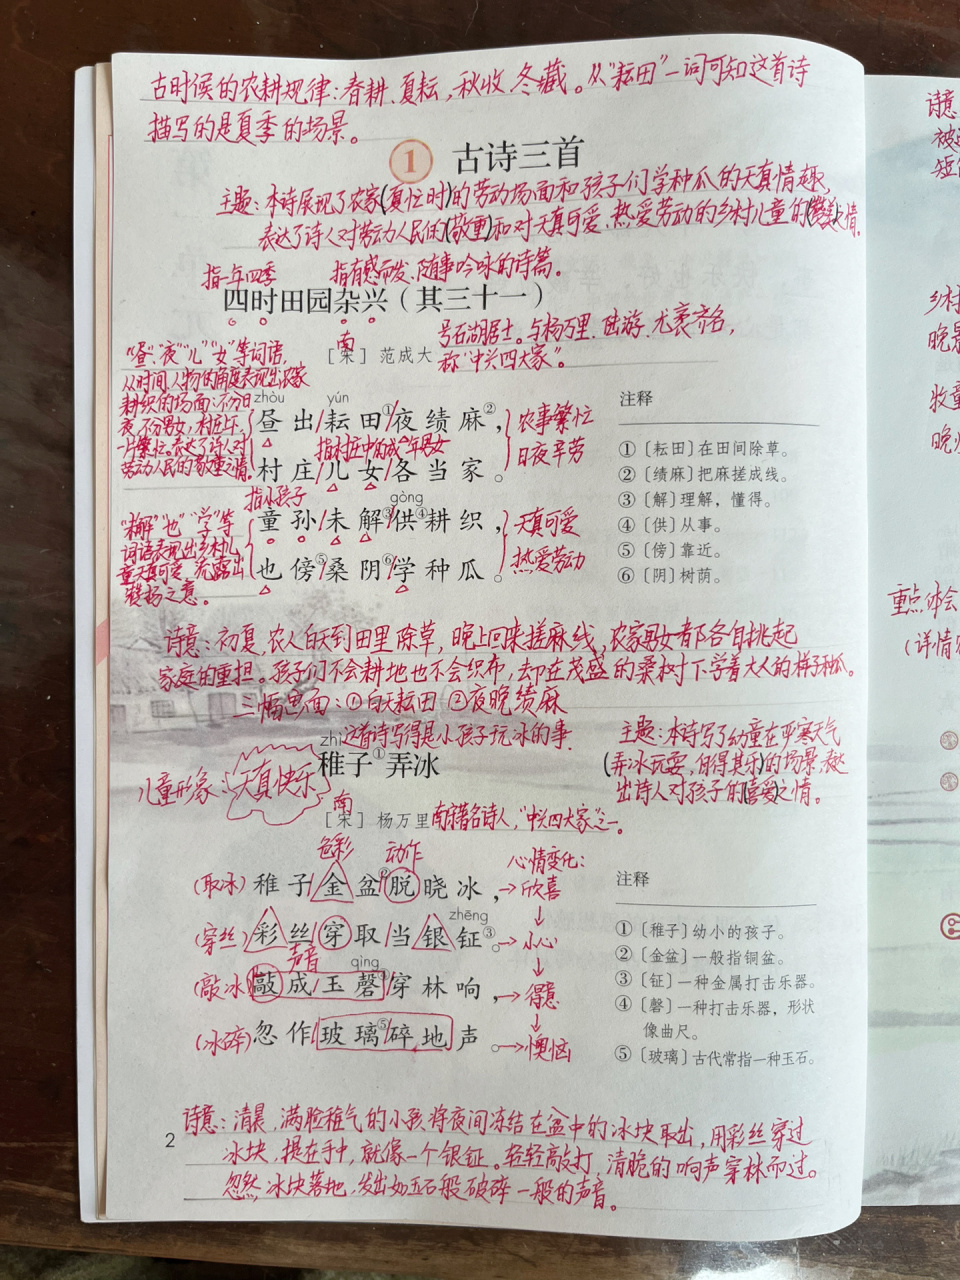 古时候的农耕规律:春耕、夏耘,秋收、冬藏。从“耘田”一词可知这首诗
描写的是夏季的场景。
1 古诗三首
主题:本诗展现了农家(夏忙时)的劳动场面和孩子们学种瓜的天真情趣,
表达了诗人对劳动人民的(敬重)和对天真可爱、热爱劳动的乡村儿童的(赞美)之情。
指一年四季 指有感而发、随事吟咏的诗篇。
四时田园杂兴(其三十一)
号石湖居士。与杨万里、陆游、尤袤齐名,
称“中兴四大家”。
南
[宋] 范成大
“昼”“夜”“儿”“女”等词语,
从时间、人物的角度表现出农家
耕织的场面:不分日
夜,不分男女,村庄上下,
一片繁忙。表达了诗人对
劳动人民的敬重之情。
zhòu yún
昼出/耘田①/夜绩麻②,
指村庄中的成年男女
村庄/儿女/各当家。
农事繁忙
日夜辛劳
指小孩子
gòng
童孙/未解③/供④耕织,
也傍⑤/桑阴⑥/学种瓜。
天真可爱
热爱劳动
“未解”“也”“学”等
词语表现出乡村儿
童天真可爱,流露出
赞扬之意。
注释
①〔耘田〕在田间除草。
②〔绩麻〕把麻搓成线。
③〔解〕理解,懂得。
④〔供〕从事。
⑤〔傍〕靠近。
⑥〔阴〕树荫。
诗意:初夏,农人白天到田里除草,晚上回来搓麻线,农家男女都各自挑起
家庭的重担。孩子们不会耕地也不会织布,却在茂盛的桑树下学着大人的样子种瓜。
三幅画面:①白天耘田 ②夜晚绩麻
这首诗写得是小孩子玩冰的事.
zhì
稚子①弄冰
儿童形象:天真快乐
主题:本诗写了幼童在严寒天气
(弄冰玩耍,自得其乐)的场景,表达
出诗人对孩子的(喜爱)之情。
南
[宋] 杨万里 南宋著名诗人,“中兴四大家”之一。
色彩 动作
(取冰)稚子/金盆②/脱晓冰,
zhēng
(穿丝)彩丝/穿取/当银钲③。
声音 qìng
(敲冰)敲成/玉磬④/穿林响,
(冰碎)忽作/玻璃⑤/碎地声。
心情变化:
→欣喜
↓
→小心
↓
→得意
↓
→懊恼
注释
①〔稚子〕幼小的孩子。
②〔金盆〕一般指铜盆。
③〔钲〕一种金属打击乐器。
④〔磬〕一种打击乐器,形状
像曲尺。
⑤〔玻璃〕古代常指一种玉石。
诗意:清晨,满脸稚气的小孩将夜间冻结在盆中的冰块取出,用彩丝穿过
冰块,提在手中,就像一个银钲。轻轻敲打,清脆的响声穿林而过。
忽然,冰块落地,发出如玉石般破碎一般的声音。
2
诗意
乡村
晚景
牧童
重点体会